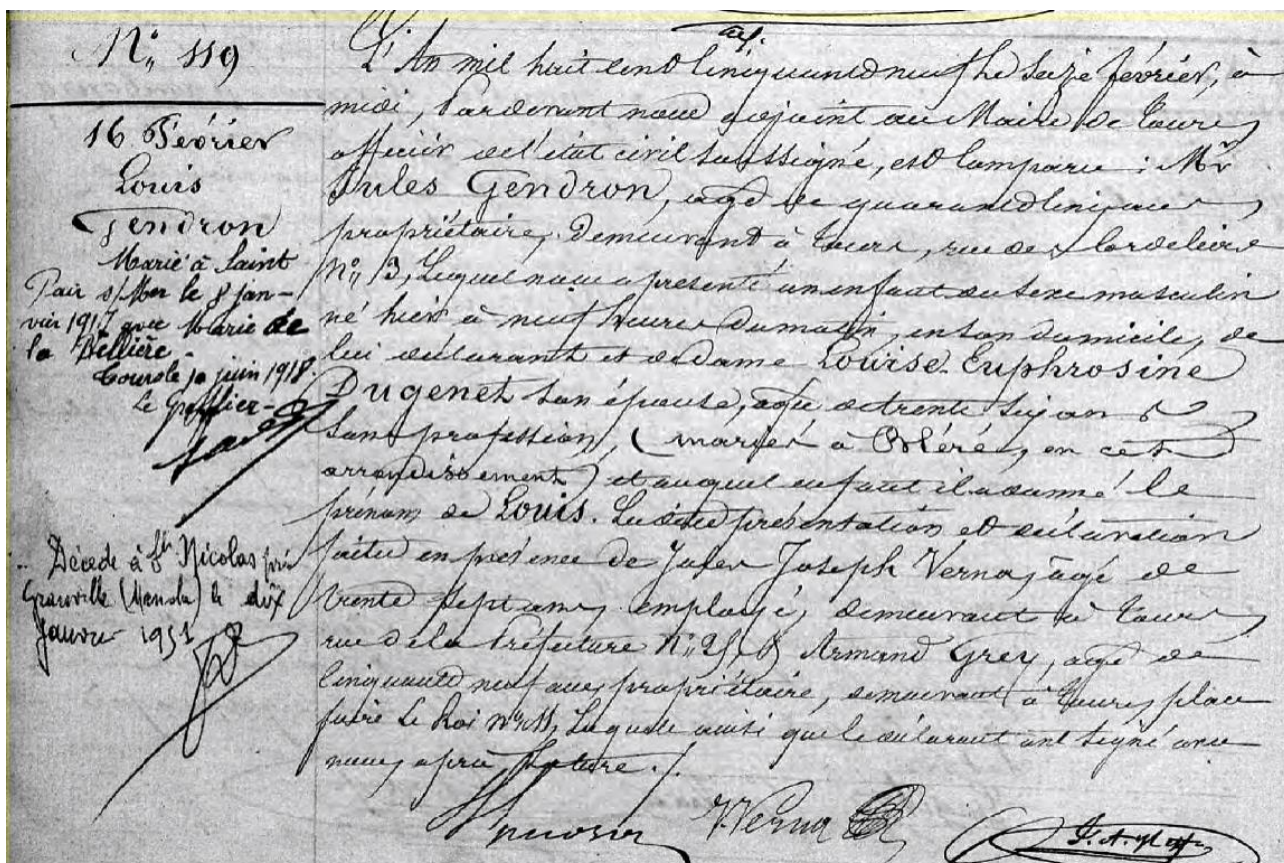 N° 119
16 Février
Louis
Gendron
Marié à Saint
Pair s/Mer le 8 jan-
vier 1917 avec Marie de
la Bellière
Tours le 10 juin 1918.
Le Greffier
Décédé à St Nicolas près
Granville (Manche) le dix
Janvier 1951
L'An mil huit cent cinquante neuf le seize février, à
midi, Pardevant nous adjoint au Maire de Tours,
officier de l'état civil soussigné, est comparu : Mr
Jules Gendron, âgé de quarante cinq ans,
propriétaire, demeurant à Tours, rue des Cordeliers
N° 13, Lequel nous a présenté un enfant du sexe masculin
né hier à neuf heures du matin, en son domicile, de
lui déclarant et de dame Louise Euphrosine
Dugenet son épouse, âgée de trente six ans
sans profession, (mariés à Bléré, en cet
arrondissement) et auquel enfant il a donné le
prénom de Louis. Lesdites présentation et déclaration
faites en présence de Joseph Verna, âgé de
trente sept ans, employé, demeurant à Tours,
rue de la Préfecture N° 25, & Armand Grey, âgé de
cinquante neuf ans, propriétaire, demeurant à Tours, place
foire le Roi N° 11, Lesquels ainsi que le déclarant ont signé avec
nous, après lecture ./.
J. Verna